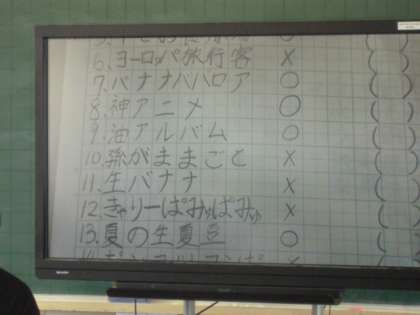 6. ヨーロッパ旅行客 ×
7. バナナハハロア ○
8. 神アニメ ○
9. 油アルバム ○
10. 孫がままごと ×
11. 生バナナ ×
12. きゃりーぱみゅぱみゅ ×
13. 夏の生夏豆 ○
SHARP